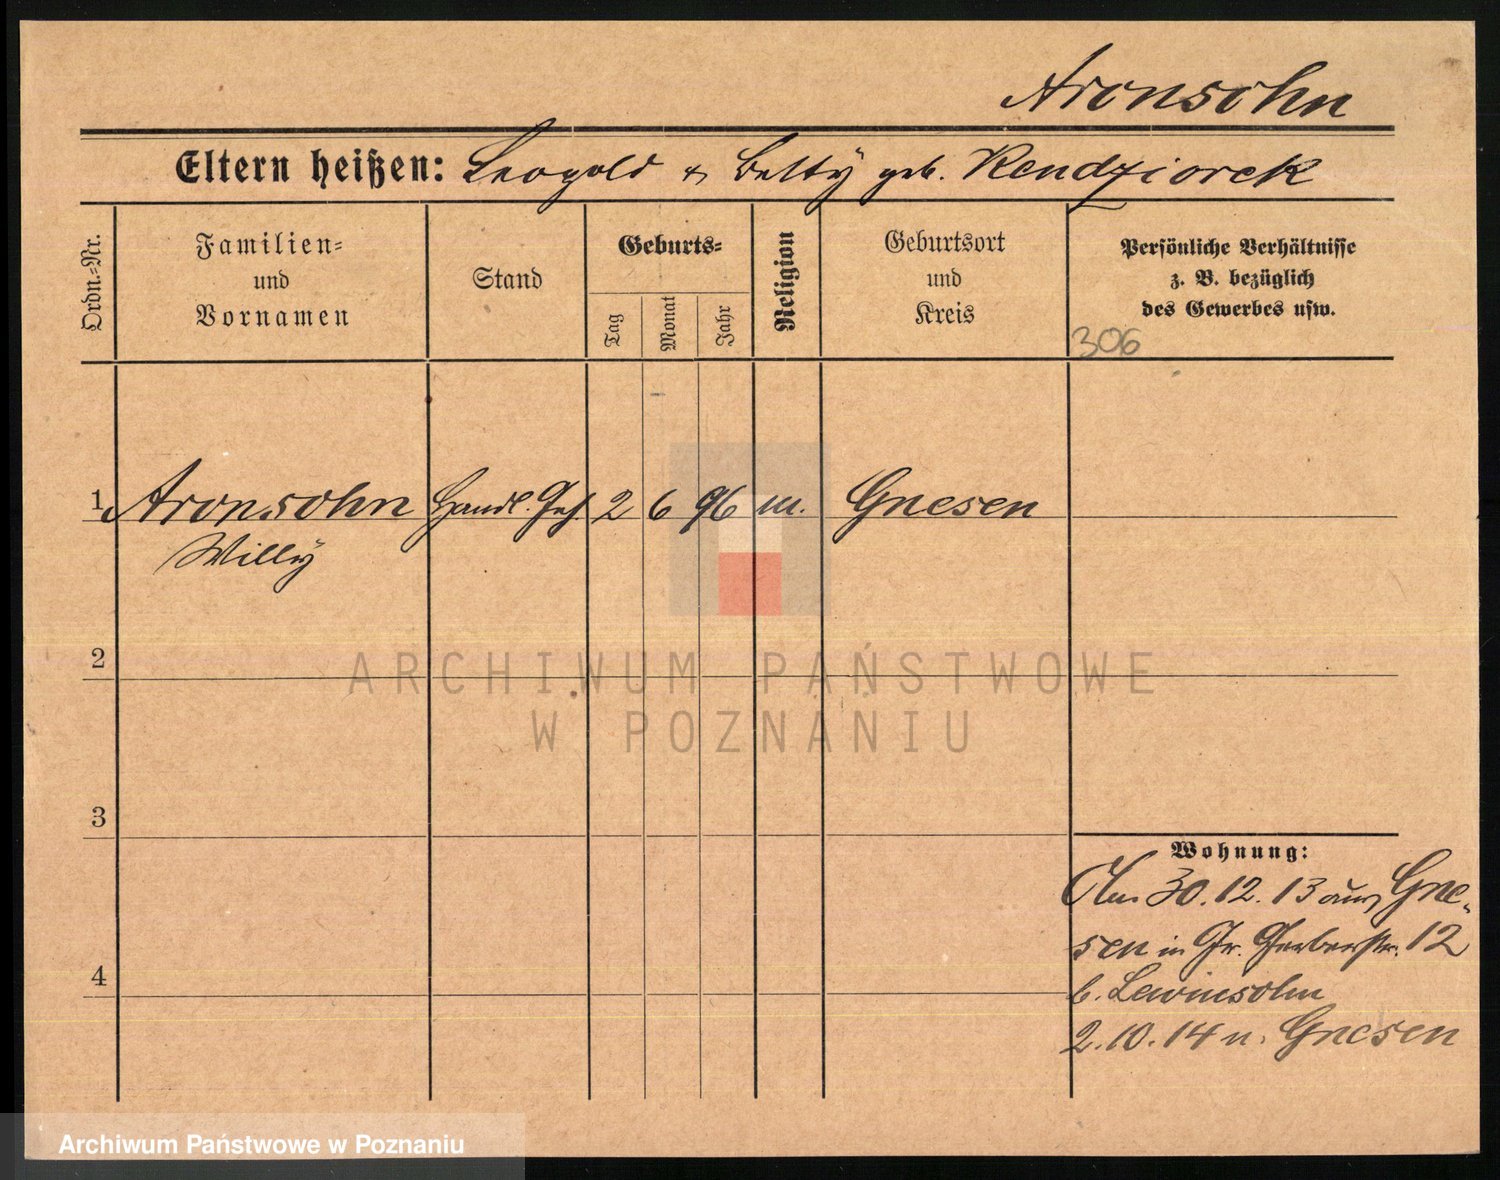 Aronsohn
Eltern heißen: Leopold & Betty geb. Rendziorek
Ordn.=Nr.
Familien=
und
Vornamen
Stand
Geburts=
Tag
Monat
Jahr
Religion
Geburtsort
und
Kreis
Persönliche Verhältnisse
z. B. bezüglich
des Gewerbes usw.
306
1 Aronsohn Handl. Geh. 2 6 96 m. Gnesen
Willy
2
ARCHIWUM PAŃSTWOWE
W POZNANIU
3
Wohnung:
Am 30.12.13 aus Gne-
sen in Gr. Gerberstr. 12
4
b. Lewinsohn
2.10.14 n. Gnesen
Archiwum Państwowe w Poznaniu